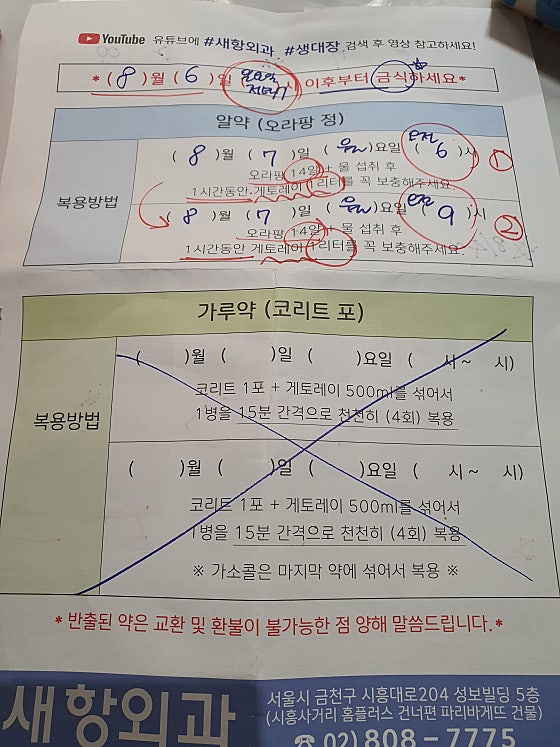 YouTube 유튜브에 #새항외과 #생대장 검색 후 영상 참고하세요!
*( 8 )월 ( 6 )일 이후부터 금식하세요*
알약 (오라팡 정)
복용방법
( 8 )월 ( 7 )일 ( )요일 ( 오전 6 )시 ①
오라팡 14알 + 물 섭취 후
1시간동안 게토레이 1리터를 꼭 보충해주세요.
( 8 )월 ( 7 )일 ( )요일 ( 오전 9 )시 ②
오라팡 14알 + 물 섭취 후
1시간동안 게토레이 1리터를 꼭 보충해주세요.
가루약 (코리트 포)
복용방법
( )월 ( )일 ( )요일 ( 시 ~ 시)
코리트 1포 + 게토레이 500ml를 섞어서
1병을 15분 간격으로 천천히 (4회) 복용
( )월 ( )일 ( )요일 ( 시 ~ 시)
코리트 1포 + 게토레이 500ml를 섞어서
1병을 15분 간격으로 천천히 (4회) 복용
※ 가소콜은 마지막 약에 섞어서 복용 ※
* 반출된 약은 교환 및 환불이 불가능한 점 양해 말씀드립니다.*
새항외과
서울시 금천구 시흥대로204 성보빌딩 5층
(시흥사거리 홈플러스 건너편 파리바게뜨 건물)
☎ 02) 808 - 7775